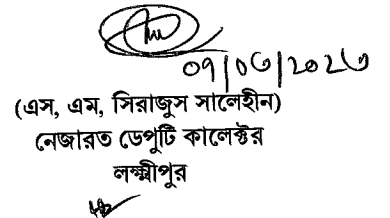 ০৭/০৩/২০২৩
(এস, এম, সিরাজুস সালেহীন)
নেজারত ডেপুটি কালেক্টর
লক্ষ্মীপুর